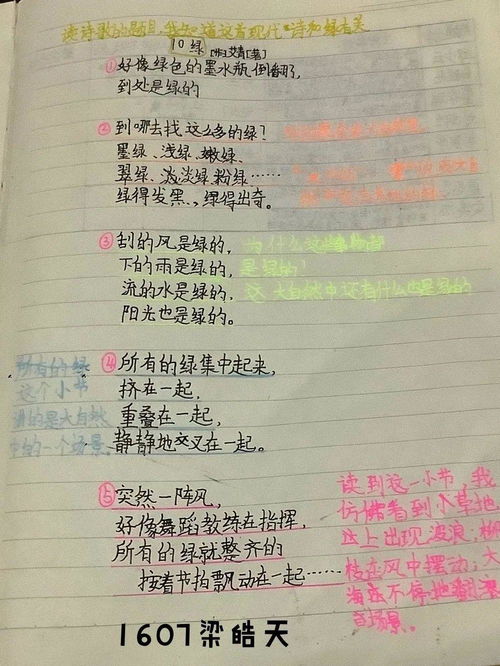 读诗歌的题目，我知道这首现代诗和绿有关
10 绿 [中]艾青[著]
①好像绿色的墨水瓶倒翻了，
到处是绿的
②到哪去找这么多的绿？
墨绿、浅绿、嫩绿、
翠绿、淡淡绿、粉绿……
绿得发黑、，绿得出奇。
③刮的风是绿的，
为什么这些
下的雨是绿的，
是绿的！
流的水是绿的，
这大自然中还有什么也是绿的
阳光也是绿的。
所有的绿
这个小节
的是大自然
的一个场景。
④所有的绿集中起来，
挤在一起，
重叠在一起，
静静地交叉在一起。
⑤突然一阵风，
好像舞蹈教练在指挥，
所有的绿就整齐的
按着节拍飘动在一起……
读到这一小节，我
仿佛看到小草地
上出现波浪，柳
枝在风中摆动，大
海在不停地翻
场景。
1607梁皓天